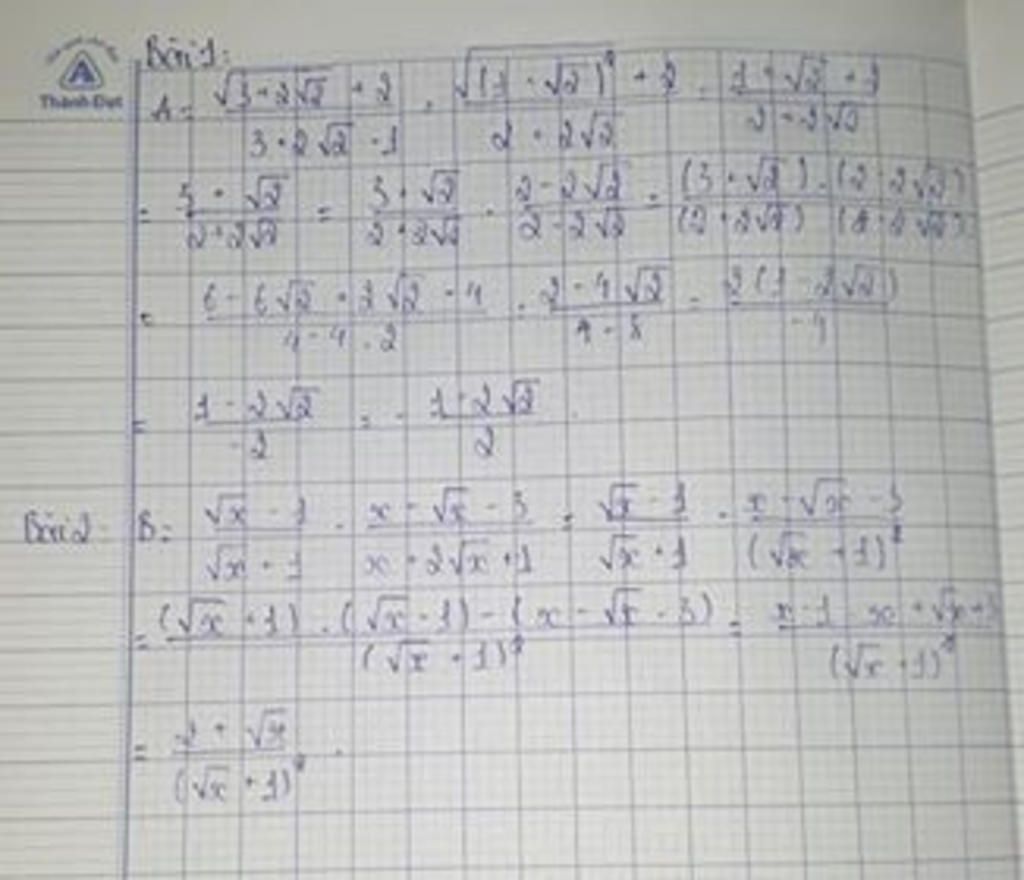 Thành Đạt
Bài 1:
A = \frac{\sqrt{3+2\sqrt{2}} + 2}{3+2\sqrt{2} - 1} = \frac{\sqrt{(1+\sqrt{2})^2} + 2}{2+2\sqrt{2}} = \frac{1+\sqrt{2}+2}{2+2\sqrt{2}}
= \frac{3+\sqrt{2}}{2+2\sqrt{2}} = \frac{3+\sqrt{2}}{2+2\sqrt{2}} \cdot \frac{2-2\sqrt{2}}{2-2\sqrt{2}} = \frac{(3+\sqrt{2}) \cdot (2-2\sqrt{2})}{(2+2\sqrt{2}) (2-2\sqrt{2})}
= \frac{6-6\sqrt{2}+2\sqrt{2}-4}{4-4 \cdot 2} = \frac{2-4\sqrt{2}}{4-8} = \frac{2(1-2\sqrt{2})}{-4}
= \frac{1-2\sqrt{2}}{-2} = - \frac{1-2\sqrt{2}}{2}
Bài 2: B = \frac{\sqrt{x}-1}{\sqrt{x}+1} - \frac{x-\sqrt{x}-3}{x+2\sqrt{x}+1} = \frac{\sqrt{x}-1}{\sqrt{x}+1} - \frac{x-\sqrt{x}-3}{(\sqrt{x}+1)^2}
= \frac{(\sqrt{x}+1) \cdot (\sqrt{x}-1) - (x-\sqrt{x}-3)}{(\sqrt{x}+1)^2} = \frac{x-1-x+\sqrt{x}+3}{(\sqrt{x}+1)^2}
= \frac{2+\sqrt{x}}{(\sqrt{x}+1)^2} .